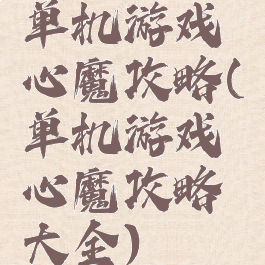 单机游戏
心魔攻略(
单机游戏
心魔攻略
大全)